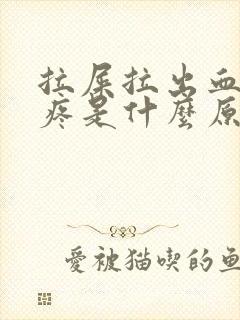 拉屎拉出血
疼是什麼原
愛被猫喫的魚